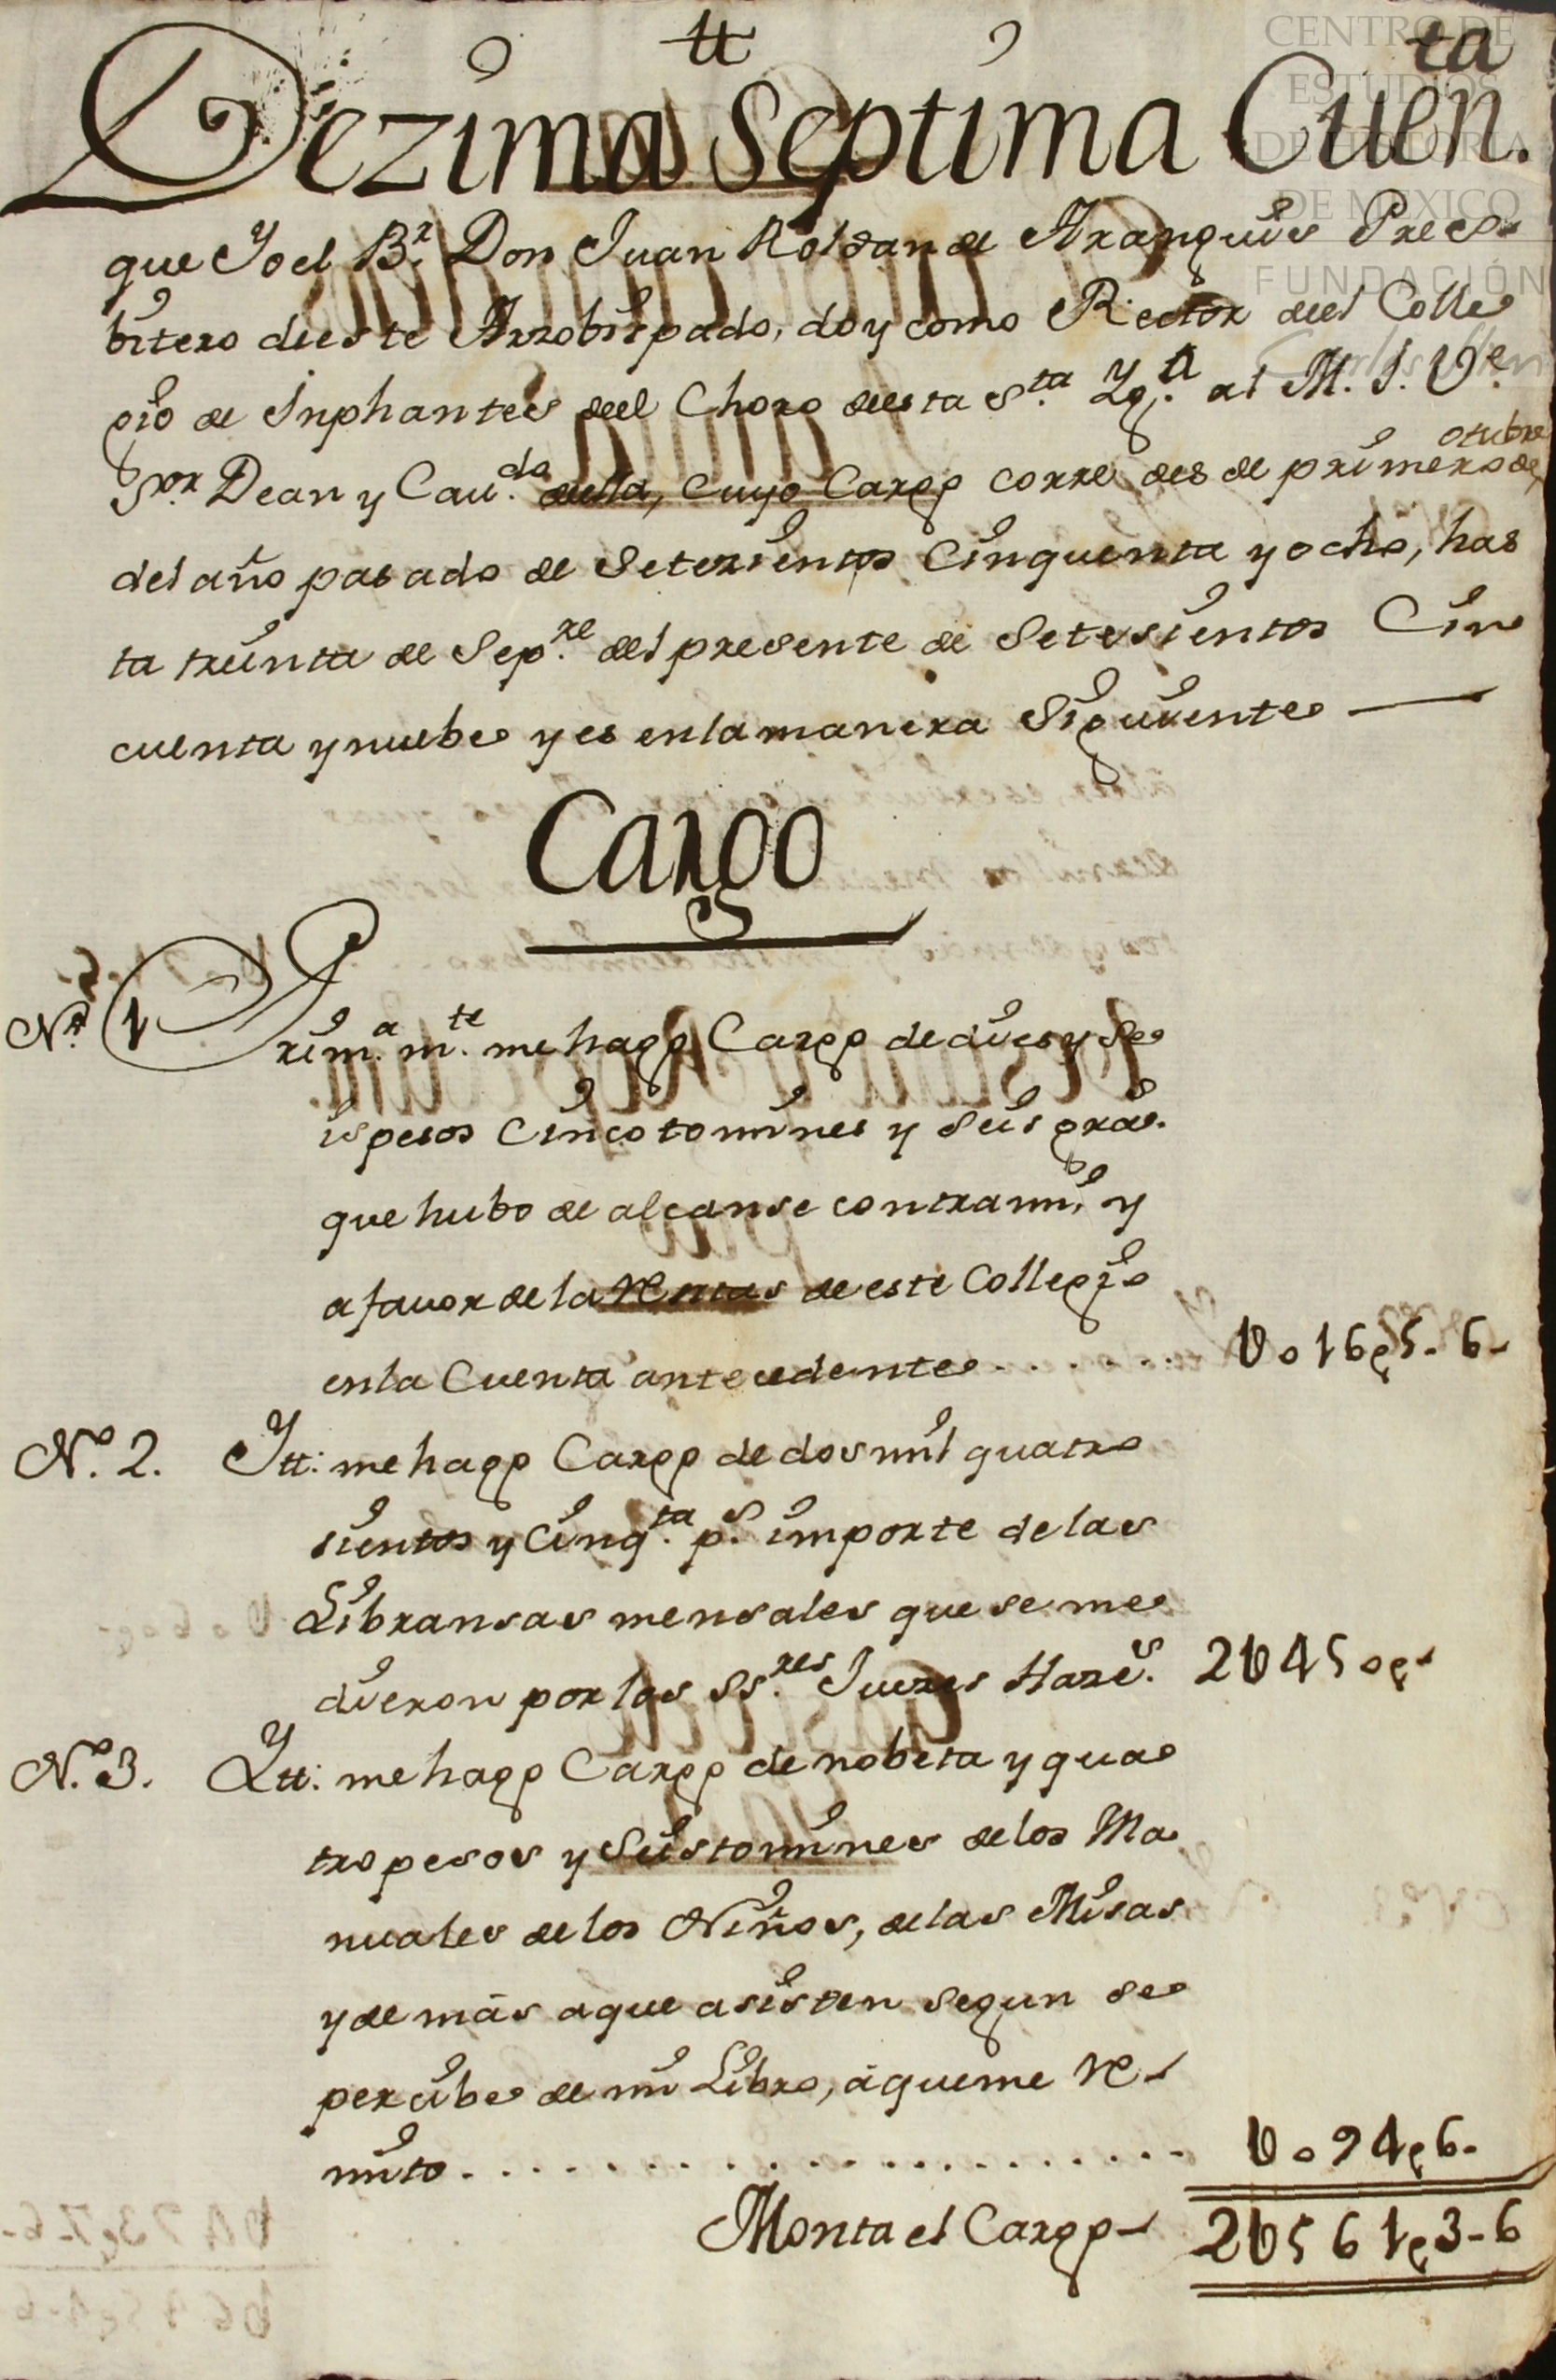 tt
Dezima Septima Cuen.ta
que Yo el B.r Don Juan Roldan de Aranguis Presbi
bitero de este Arzobispado, doy como Rector del Colle
gio de Inphantes del Choro de esta S.ta Yg.a al M. I. V.e
S.or Dean y Cau.do della, cuyo Cargo corre des de primero de
otubre
del año pasado de Setesientos Cinquenta y ocho, has
ta treinta de Sep.re del presente de Setesientos Cin
cuenta y nuebe y es en la manera Siguiente
Cargo
N.o 1 Prim.a m.te me hago Cargo de dies y Se
is pesos Cinco tomines y Seis gra.s
que hubo de alcanse contra mi, y
a favor de la Rentas de este Collegio
en la Cuenta antecedente . . . . . . U o 16 p 5 - 6 -
N.o 2. Ytt: me hago Cargo de dos mil quatro
sientos y Cinq.ta p.s importe de las
Libransas mensales que se me
dieron por los SS.res Jueces Haze.s 2U450 p
N.o 3. Ytt: me hago Cargo de nobeta y qua
tro pesos y Seis tomines de los Ma
nuales de los Niños, de las Misas
y de mas a que asisten segun se
percibe de mi Libro, à que me Re
mito . . . . . . . . . . U o 94 p 6 -
Monta el Cargo 2U561 p 3 - 6